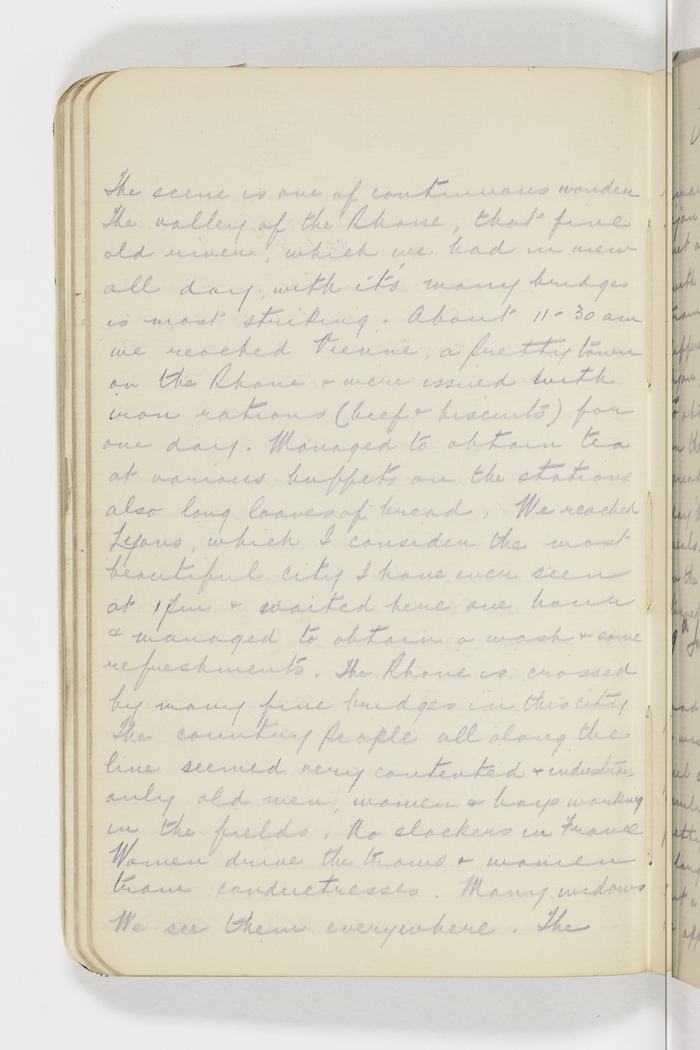 The scene is one of continuous wonder
The valley of the Rhone, that fine
old river, which we had in view
all day, with it's many bridges
is most striking. About 11-30 am
we reached Vienne, a pretty town
on the Rhone & were issued with
iron rations (beef & biscuits) for
one day. Managed to obtain tea
at various buffets on the stations
also long loaves of bread. We reached
Lyons, which I consider the most
beautiful city I have ever seen
at 1 pm & waited here one hour
& managed to obtain a wash & some
refreshments. The Rhone is crossed
by many fine bridges in this city
The country people all along the
line seemed very contented & industrious
only old men, women & boys working
in the fields. No slackers in France
Women drive the trams & women
tram conductresses. Many widows
We see them everywhere. The